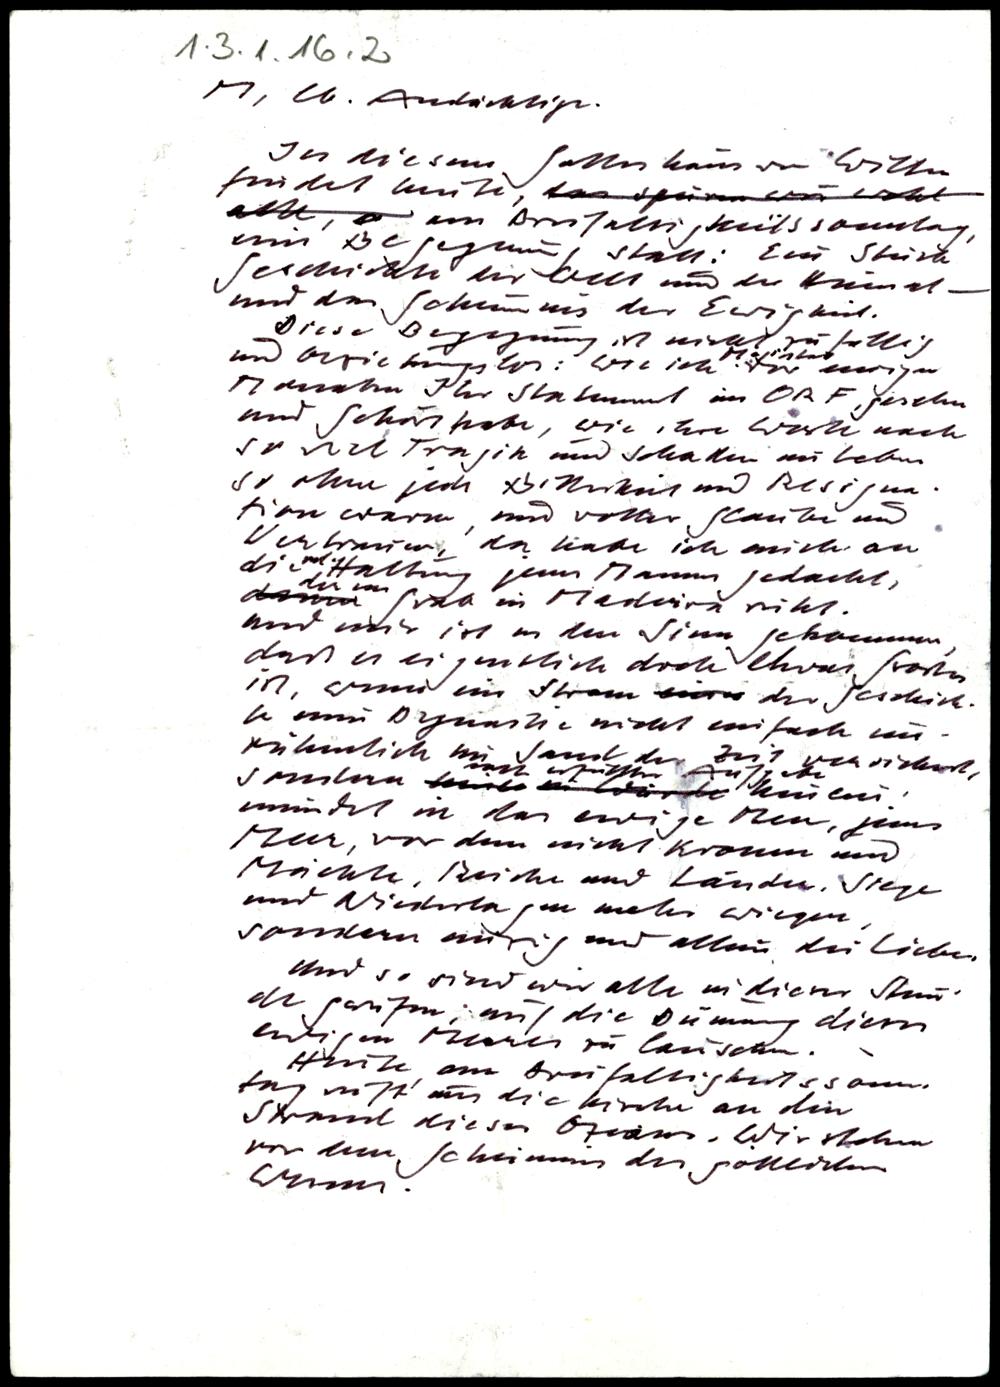 1.3.1.16.2
M, lb. Andächtige.
In diesem Gotteshaus von Wilten
findet heute, das spüren wir wohl
alle, am Dreifaltigkeitssonntag,
eine Begegnung statt: Ein Stück
Geschichte der Welt und der Heimat –
und das Geheimnis der Ewigkeit.
Diese Begegnung ist nicht zufällig
und beziehungslos: Wie ich Majestät vor einigen
Monaten Ihr Statement im ORF gesehen
und gehört habe, wie ihre Worte nach
so viel Tragik und Schatten im Leben
so ohne jede Bitterkeit und Resigna-
tion waren, und voller Glaube und
Vertrauen, da habe ich mich an
die Haltung jenes Mannes gedacht,
der im Grab in Madeira ruht.
und mir ist in den Sinn gekommen,
daß es eigentlich doch etwas Großes
ist, wenn ein Strom der Geschich-
te einer Dynastie nicht einfach un-
rühmlich im Sand der Zeit versickert,
sondern nach erfüllter Aufgabe
mündet in das ewige Meer, jenes
Meer, vor dem nicht Kronen und
Mächte, Reiche und Länder, Siege
und Niederlagen mehr wiegen,
sondern einzig und allein die Liebe.
Und so sind wir alle in dieser Stun-
de gerufen, auf die Dünung dieses
ewigen Meeres zu lauschen.
Heute am Dreifaltigkeitssonn-
tag ruft uns die Kirche an den
Strand dieses Ozeans. Wir stehen
vor dem Geheimnis des göttlichen
Wesens.